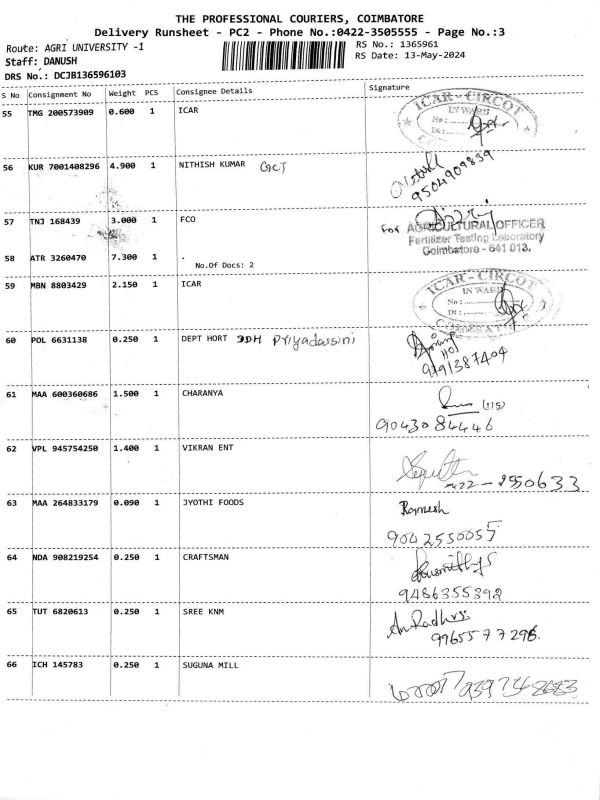 THE PROFESSIONAL COURIERS, COIMBATORE
Delivery Runsheet - PC2 - Phone No.:0422-3505555 - Page No.:3
Route: AGRI UNIVERSITY -1 RS No.: 1365961
Staff: DANUSH RS Date: 13-May-2024
DRS No.: DCJB136596103
S No Consignment No Weight PCS Consignee Details Signature
55 TMG 200573909 0.600 1 ICAR
ICAR-CIRCOT
INWARD
No:
Dt:
56 KUR 7001408296 4.900 1 NITHISH KUMAR GCT
9504909839
57 TNJ 168439 3.000 1 FCO
For AGRICULTURAL OFFICER
Fertilizer Testing Laboratory
Coimbatore - 641 013.
58 ATR 3260470 7.300 1 .
No.Of Docs: 2
59 MBN 8803429 2.150 1 ICAR
ICAR-CIRCOT
IN WARD
No:
Dt:
60 POL 6631138 0.250 1 DEPT HORT DDH Priyadassini
9791387404
61 MAA 600360686 1.500 1 CHARANYA
9043084446
62 VPL 945754250 1.400 1 VIKRAN ENT
0422-2550633
63 MAA 264833179 0.090 1 JYOTHI FOODS
Ramesh
9042550055
64 NDA 908219254 0.250 1 CRAFTSMAN
9486355392
65 TUT 6820613 0.250 1 SREE KNM
9965577296
66 ICH 145783 0.250 1 SUGUNA MILL